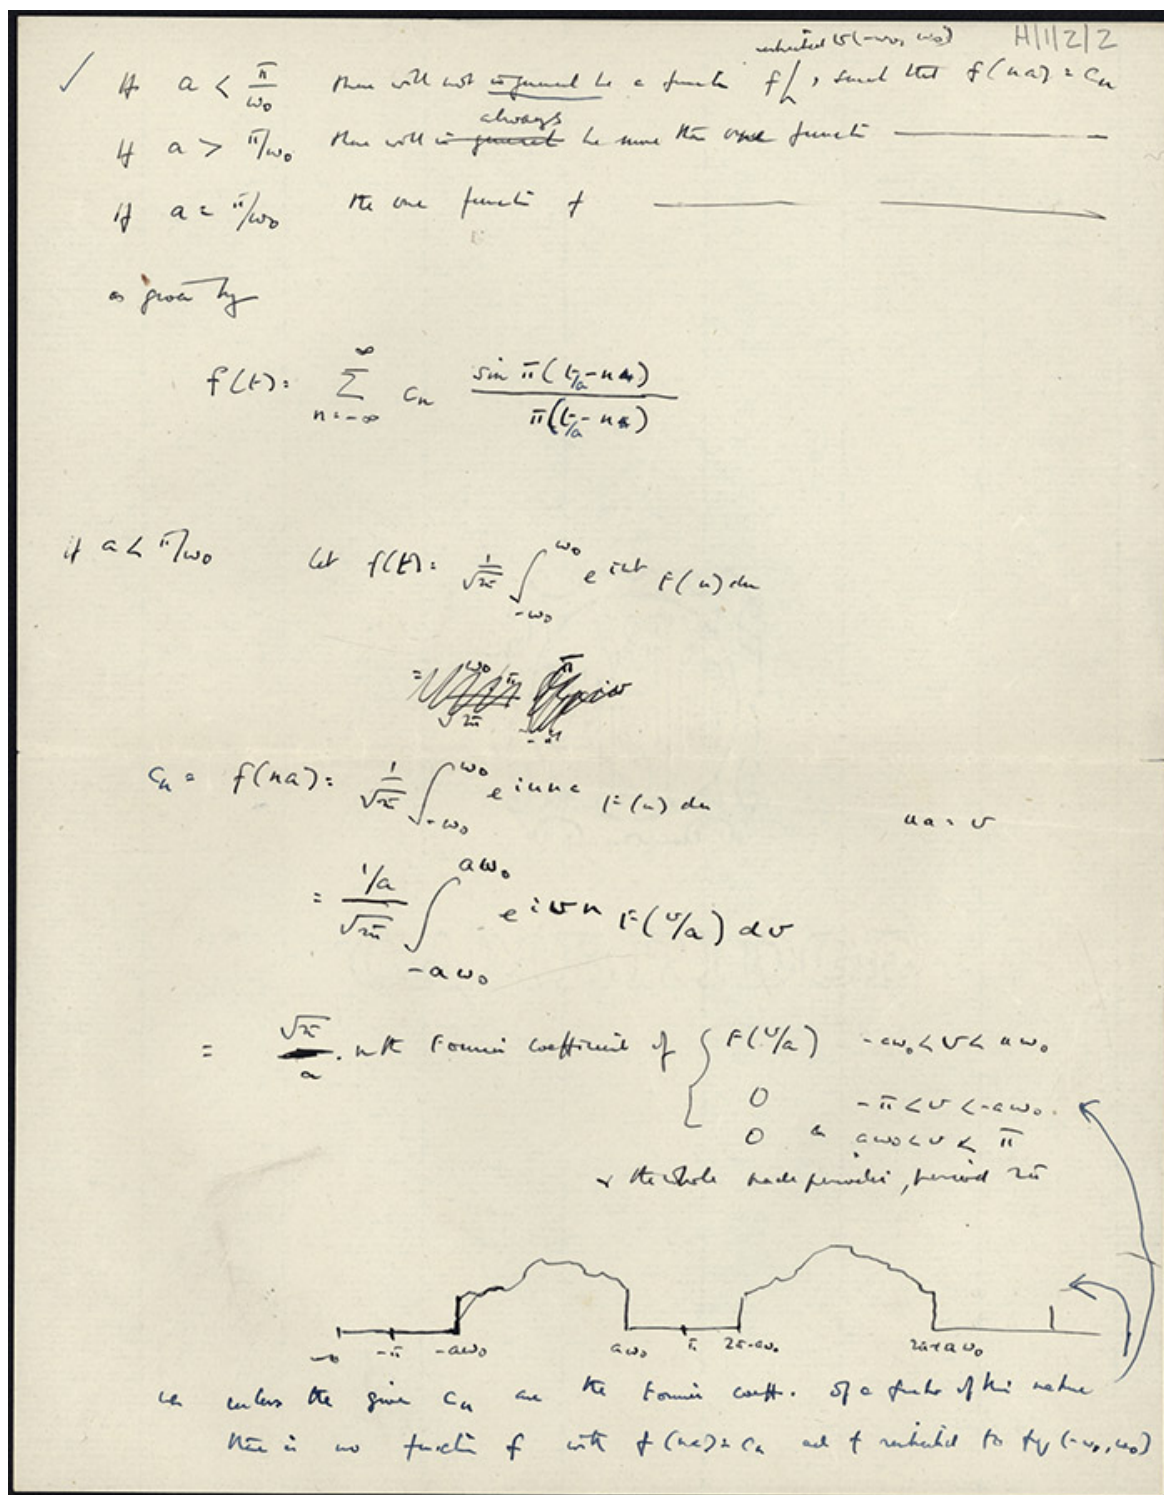 H/1/2/2
restricted to (-ω₀, ω₀)
✓ If a < π/ω₀ there will not in general be a function f, such that f(na) = cₙ
always
If a > π/ω₀ there will in general be more than one function ———
If a = π/ω₀ the one function f ——— ———
is given by
f(t) = ∑_{n=-∞}^{∞} cₙ sin π(t/a - n) / π(t/a - n)
If a < π/ω₀ let f(t) = 1/√2π ∫_{-ω₀}^{ω₀} e^{iut} F(u) du
cₙ = f(na) = 1/√2π ∫_{-ω₀}^{ω₀} e^{iuna} F(u) du ua = v
= 1/a / √2π ∫_{-aω₀}^{aω₀} e^{ivn} F(v/a) dv
= √2π / a . nth Fourier coefficient of { F(v/a) -aω₀ < v < aω₀
0 -π < v < -aω₀.
0 aω₀ < v < π
+ the whole made periodic, period 2π
-π -aω₀ aω₀ π 2π-aω₀ 2π+aω₀
unless the given cₙ are the Fourier coeff. of a function of this nature
there is no function f with f(na) = cₙ and f restricted to (-ω₀, ω₀)